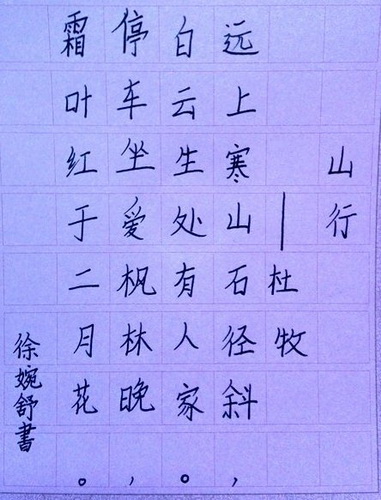 山行
——杜牧
远上寒山石径斜，
白云生处有人家。
停车坐爱枫林晚，
霜叶红于二月花。
徐婉舒書